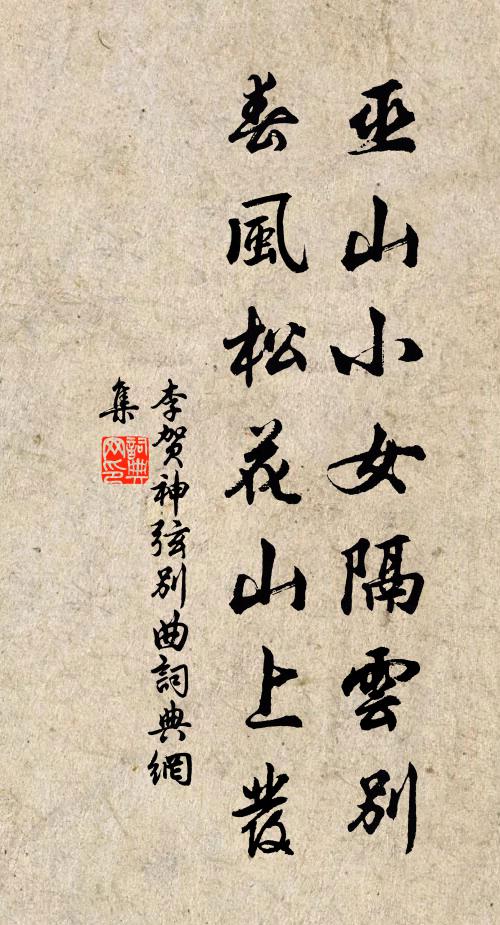 巫山小女隔雲別
春風松花山上發
李賀神弦別曲詞典網
集
詞典
网印